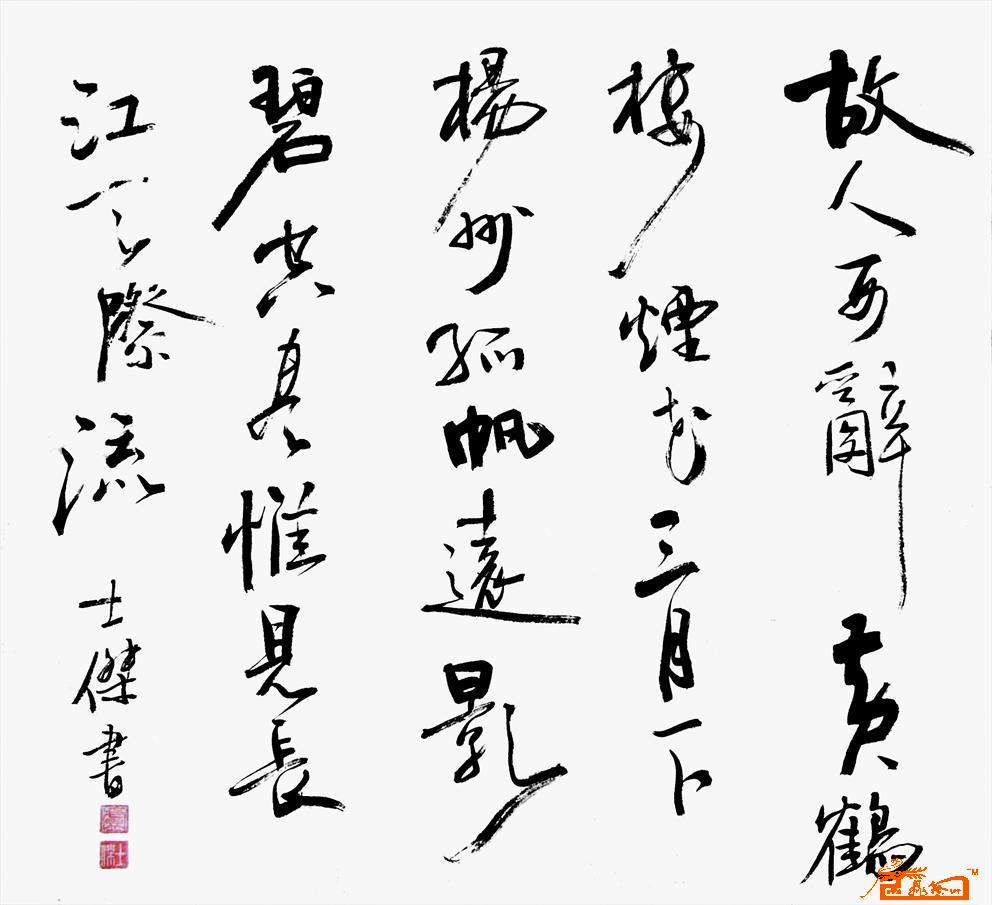 故人西辭黄鶴
樓煙花三月下
楊州孤帆遠影
碧空尽惟見長
江天際流
士傑書